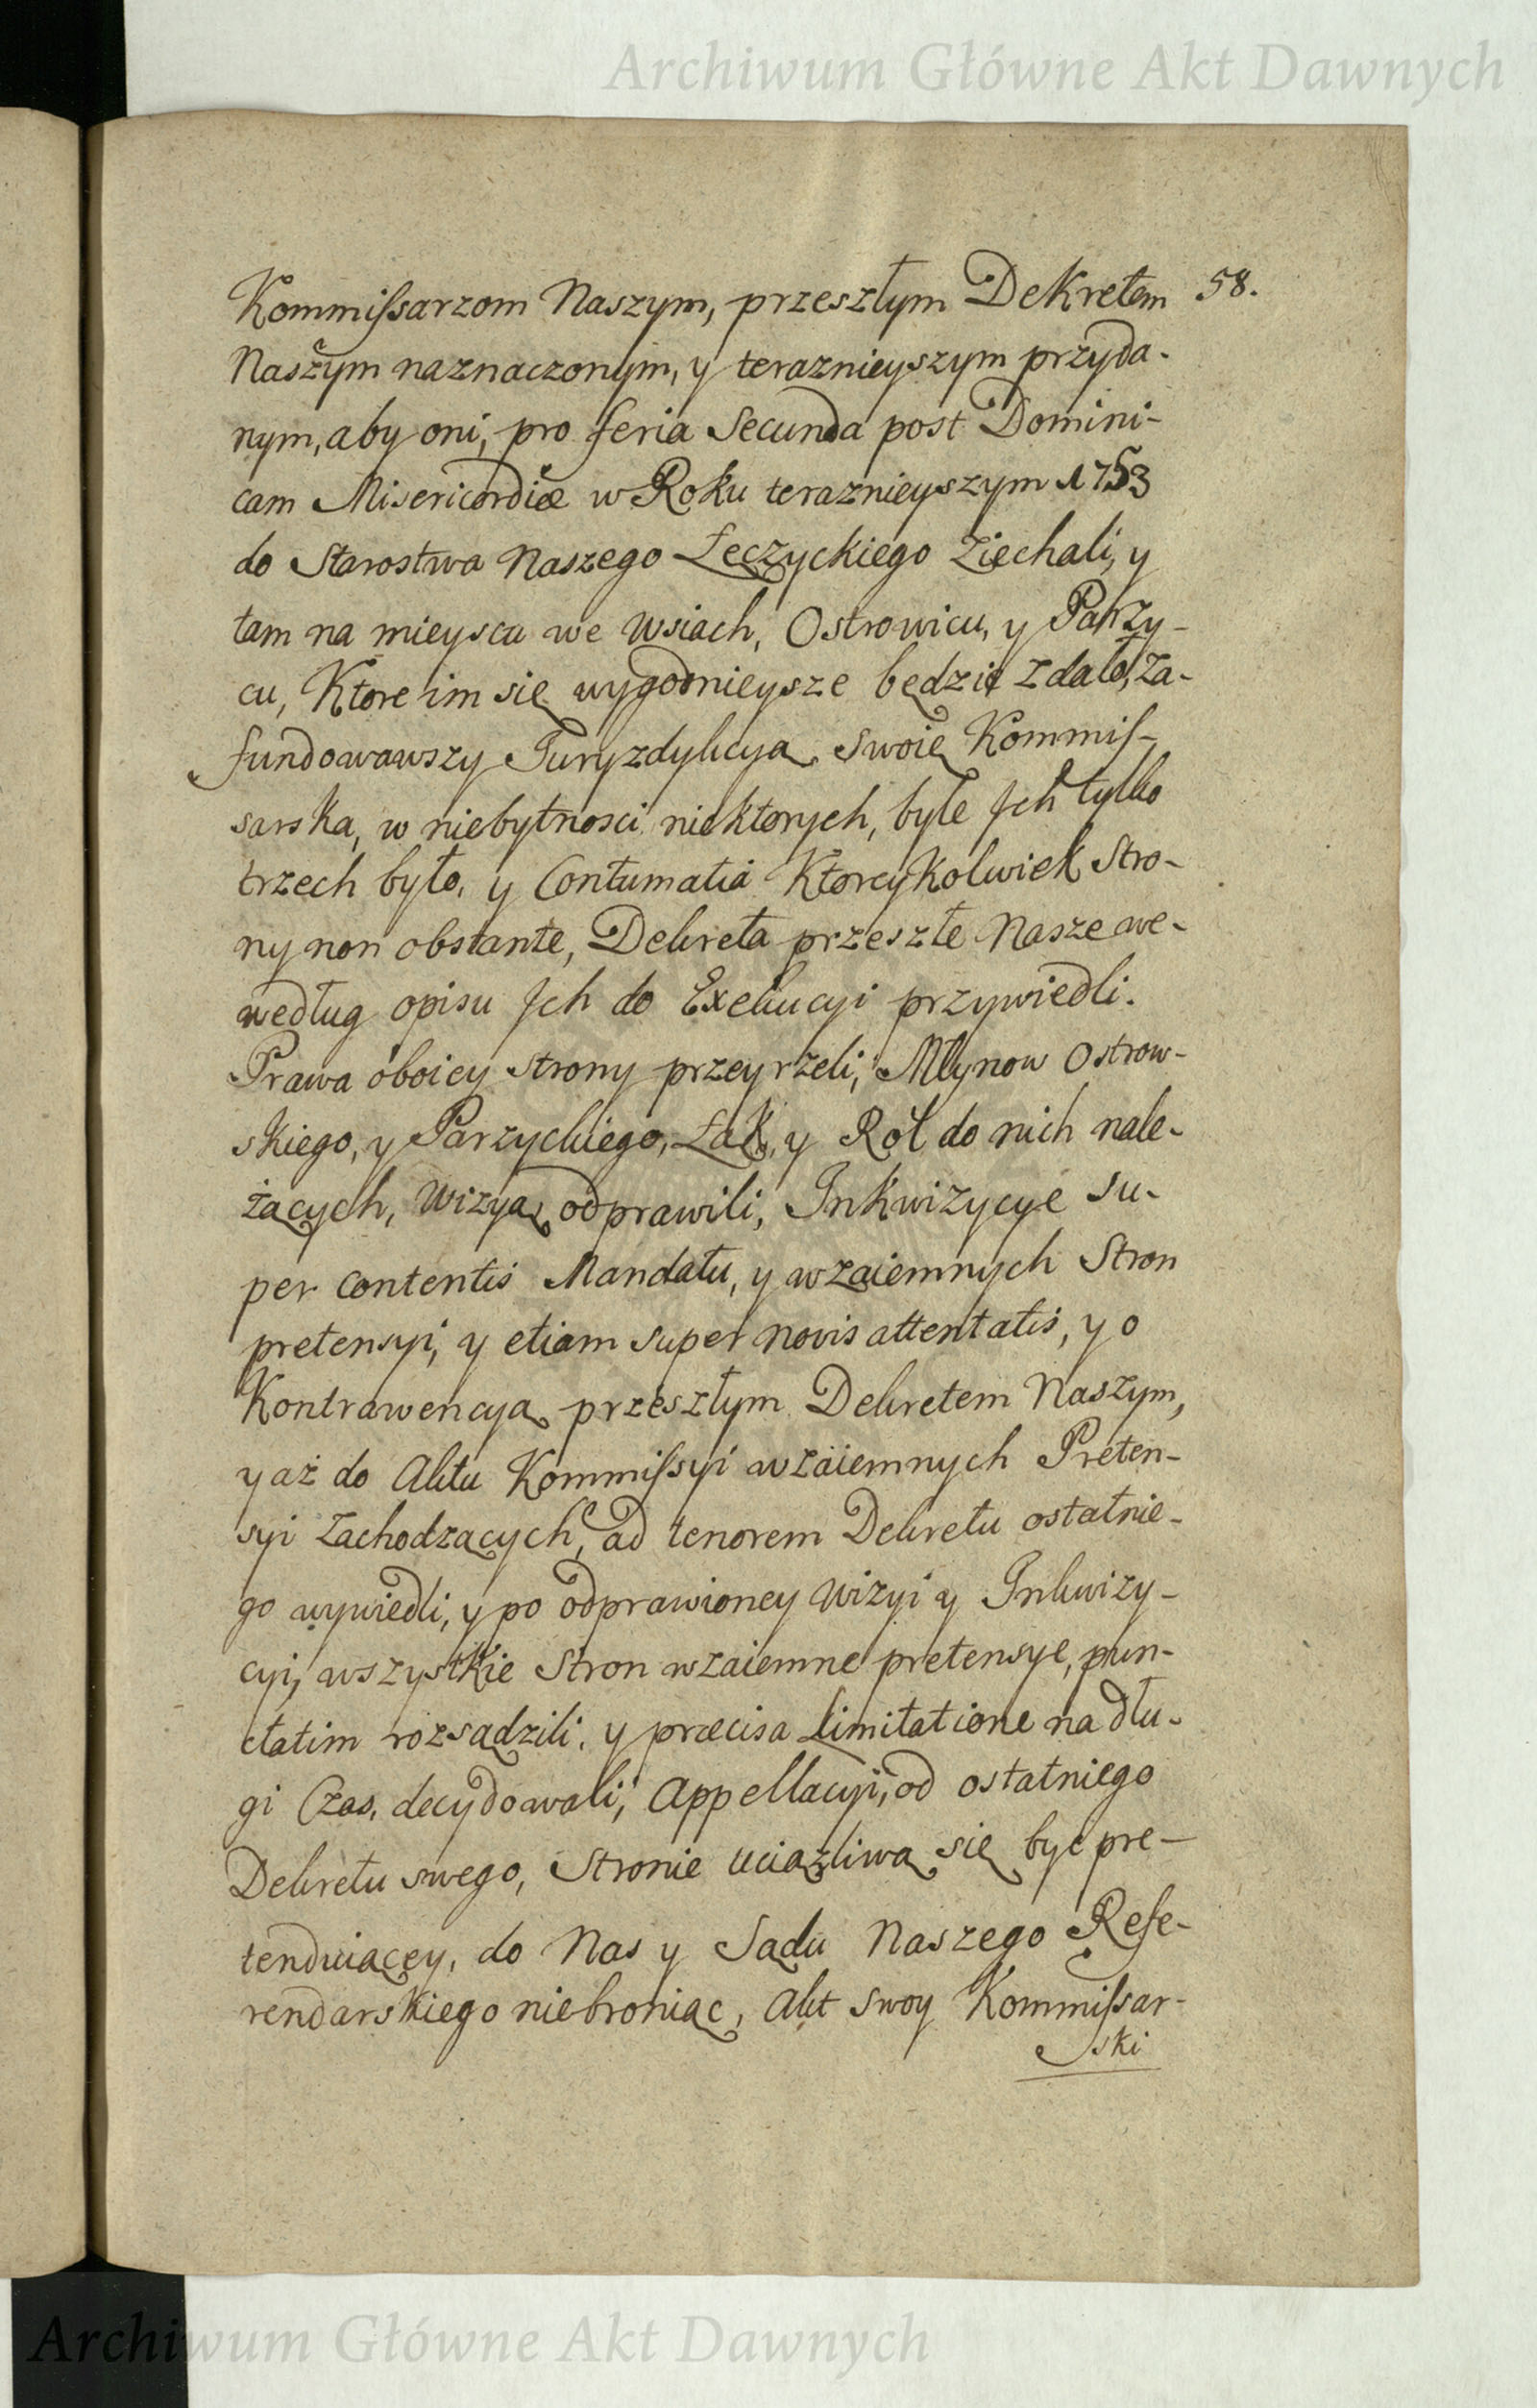 Archiwum Główne Akt Dawnych
58.
Kommißarzom Naszym, przeszłym Dekretem
Naszym naznaczonym, y teraznieyszym przyda-
nym, aby oni, pro feria Secunda post Domini-
cam Misericordiæ w Roku teraznieyszym 1753
do Starostwa Naszego Łęczyckiego ziechali, y
tam na mieyscu we Wsiach, Ostrowicu, y Parzy-
cu, Ktore im się wygodnieysze będzie zdało, za-
fundowawszy Juryzdykcyą swoię Kommis-
sarska, w niebytnosci niektorych, byle Jch tylko
trzech było, y Contumatia Ktoreykolwiek Stro-
ny non obstante, Dekreta przeszłe Nasze we-
według opisu Jch do Exekucyi przywiedli.
Prawa oboiey strony przeyrzeli, Młynow Ostrow-
skiego, y Parzyckiego, Łąk, y Rol do nich nale-
żących, Wizyą odprawili, Inkwizycye su-
per contentis Mandatu, y wzaiemnych Stron
pretensyi, y etiam super novis attentatis, y o
Kontrawencyą przeszłym Dekretem Naszym,
y aż do Aktu Kommißyi wzaiemnych Preten-
syi zachodzących, ad tenorem Dekretu ostatnie-
go wywiedli, y po odprawioney Wizyi y Inkwizy-
cyi, wszystkie Stron wzaiemne pretensye, pun-
ctatim rozsądzili, y præcisa Limitatione na dłu-
gi Czas, decydowali, Appellacyi, od ostatniego
Dekretu swego, Stronie uciążliwą się byc pre-
tenduiącey, do Nas y Sądu Naszego Refe-
rendarskiego niebroniąc, Akt swoy Kommißar-
ski
Archiwum Główne Akt Dawnych